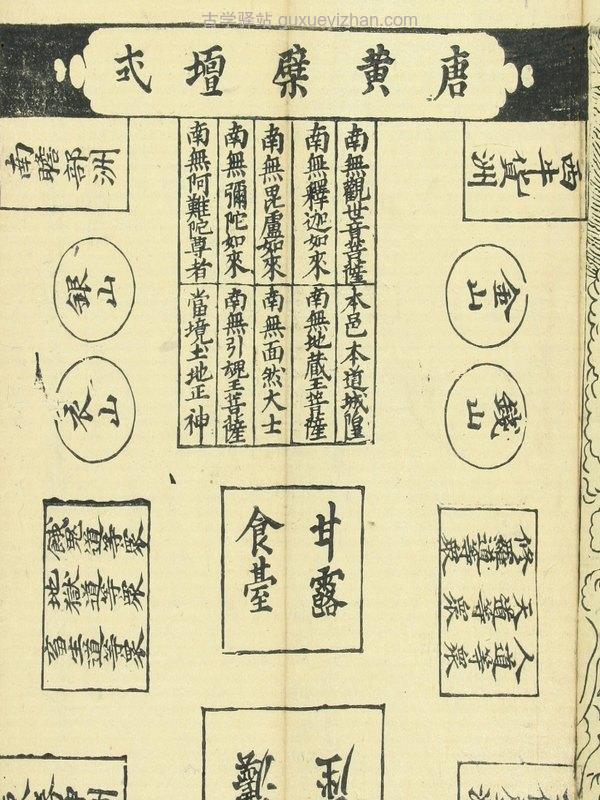 古学驿站 guxueyizhan.com
唐黄檗壇式
西牛貨洲
金山
錢山
南無觀世音菩薩
本邑本道城隍
南無釋迦如來
南無地蔵王菩薩
南無毘盧如來
南無面然大士
南無彌陀如來
南無引魂王菩薩
南無阿難陀尊者
當境土地正神
南贍部洲
銀山
衣山
修羅道等眾
天道等眾
人道等眾
甘露
食臺
餓鬼道等眾
地獄道等眾
畜生道等眾